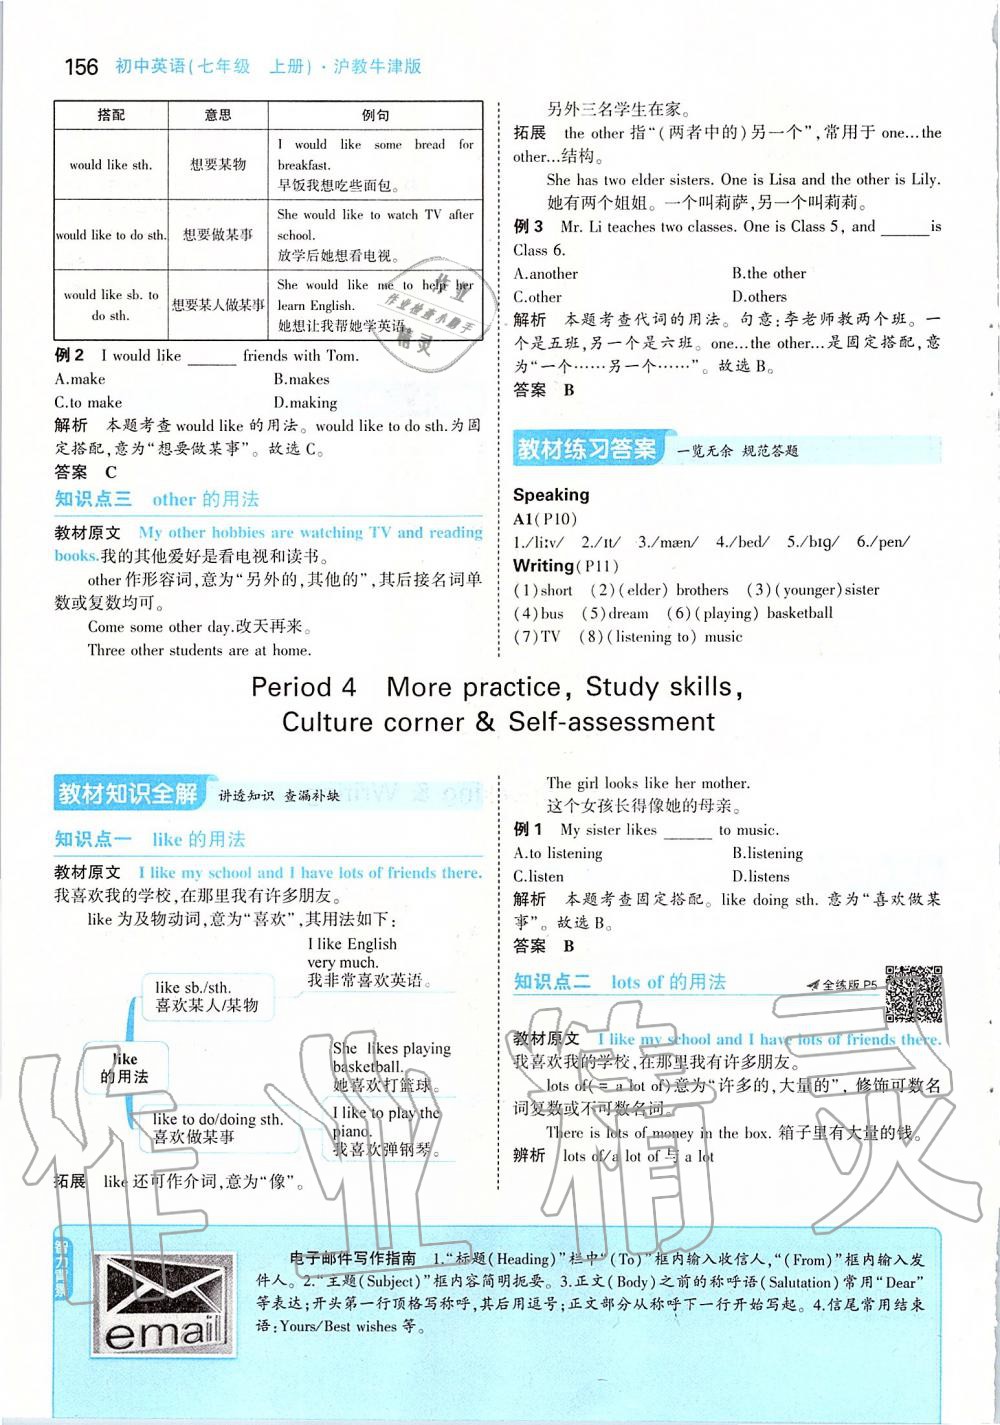 156 初中英语(七年级　上册)·沪教牛津版
搭配 意思 例句
would like sth. 想要某物 I would like some bread for
breakfast.
早饭我想吃些面包。
would like to do sth. 想要做某事 She would like to watch TV after
school.
放学后她想看电视。
would like sb. to
do sth. 想要某人做某事 She would like me to help her
learn English.
她想让我帮她学英语。
例2　I would like ______ friends with Tom.
A.make B.makes
C.to make D.making
解析　本题考查 would like 的用法。would like to do sth.为固
定搭配,意为“想要做某事”。故选 C。
答案　C
知识点三　other 的用法
教材原文　My other hobbies are watching TV and reading
books.我的其他爱好是看电视和读书。
other 作形容词,意为“另外的,其他的”,其后接名词单
数或复数均可。
Come some other day.改天再来。
Three other students are at home.
另外三名学生在家。
拓展　the other 指“(两者中的)另一个”,常用于 one...the
other...结构。
She has two elder sisters. One is Lisa and the other is Lily.
她有两个姐姐。一个叫莉萨,另一个叫莉莉。
例3　Mr. Li teaches two classes. One is Class 5, and ______is
Class 6.
A.another B.the other
C.other D.others
解析　本题考查代词的用法。句意:李老师教两个班。一
个是五班,另一个是六班。one...the other...是固定搭配,意
为“一个……另一个……”。故选 B。
答案　B
教材练习答案 一览无余 规范答题
Speaking
A1(P10)
1./liːv/　2./ɪt/　3./mæn/　4./bed/　5./bɪɡ/　6./pen/
Writing(P11)
(1)short　(2)(elder) brothers　(3)(younger)sister
(4)bus　(5)dream　(6)(playing) basketball
(7)TV　(8)(listening to) music
Period 4　More practice, Study skills,
Culture corner & Self-assessment
教材知识全解 讲透知识 查漏补缺
知识点一　like 的用法
教材原文　I like my school and I have lots of friends there.
我喜欢我的学校,在那里我有许多朋友。
like 为及物动词,意为“喜欢”,其用法如下:
like
的用法
like sb./sth.
喜欢某人/某物
I like English
very much.
我非常喜欢英语。
like to do/doing sth.
喜欢做某事
She likes playing
basketball.
她喜欢打篮球。
I like to play the
piano.
我喜欢弹钢琴。
拓展　like 还可作介词,意为“像”。
The girl looks like her mother.
这个女孩长得像她的母亲。
例1　My sister likes ______ to music.
A.to listening B.listening
C.listen D.listens
解析　本题考查固定搭配。like doing sth. 意为“喜欢做某
事”。故选 B。
答案　B
知识点二　lots of 的用法 全练版 P5
教材原文　I like my school and I have lots of friends there.
我喜欢我的学校,在那里我有许多朋友。
lots of( = a lot of)意为“许多的,大量的”, 修饰可数名
词复数或不可数名词。
There is lots of money in the box. 箱子里有大量的钱。
辨析　lots of/a lot of 与 a lot
email
电子邮件写作指南　1.“标题(Heading)”栏中“(To)”框内输入收信人,“(From)”框内输入发
件人。2.“主题(Subject)”框内容简明扼要。3.正文(Body)之前的称呼语(Salutation)常用“Dear”
等表达;开头第一行顶格写称呼,其后用逗号;正文部分从称呼下一行开始写起。4.信尾常用结束
语:Yours/Best wishes 等。
作业精灵
作业检查小助手